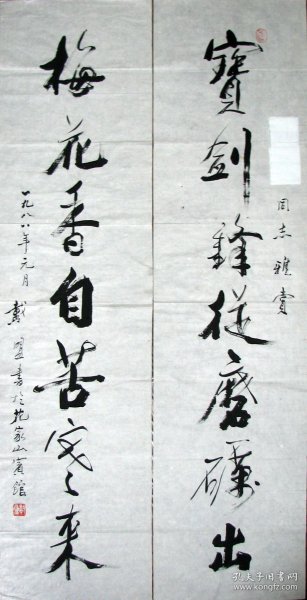 寶劍鋒從磨礪出
同志雅賞
梅花香自苦寒来
一九八八年元月
戴盟書於花家山賓館
孔夫子旧书网